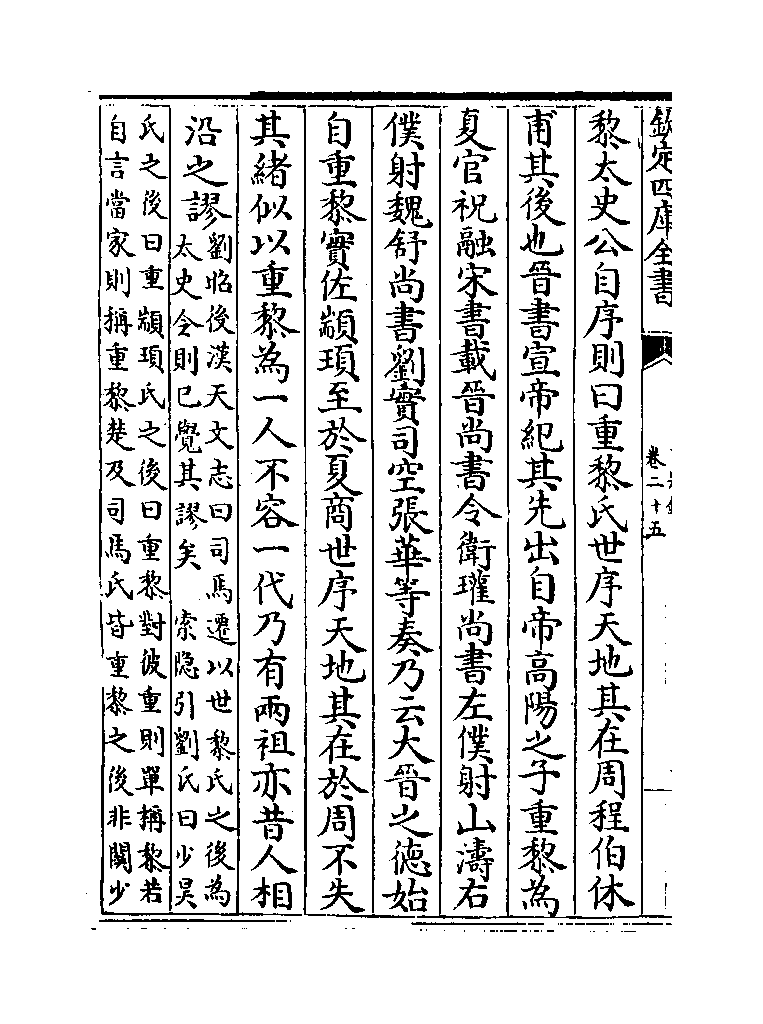 欽定四庫全書
卷二十五
黎太史公自序則曰重黎氏世序天地其在周程伯休
甫其後也晉書宣帝紀其先出自帝高陽之子重黎為
夏官祝融宋書載晉尚書令衛瓘尚書左僕射山濤右
僕射魏舒尚書劉實司空張華等奏乃云大晉之德始
自重黎實佐顓頊至於夏商世序天地其在於周不失
其緒似以重黎為一人不容一代乃有兩祖亦昔人相
沿之謬
劉昭後漢天文志曰司馬遷以世黎氏之後為
太史令則已覺其謬矣 索隐引劉氏曰少昊
氏之後曰重顓頊氏之後曰重黎對彼重則單稱黎若
自言當家則稱重黎楚及司馬氏皆重黎之後非關少